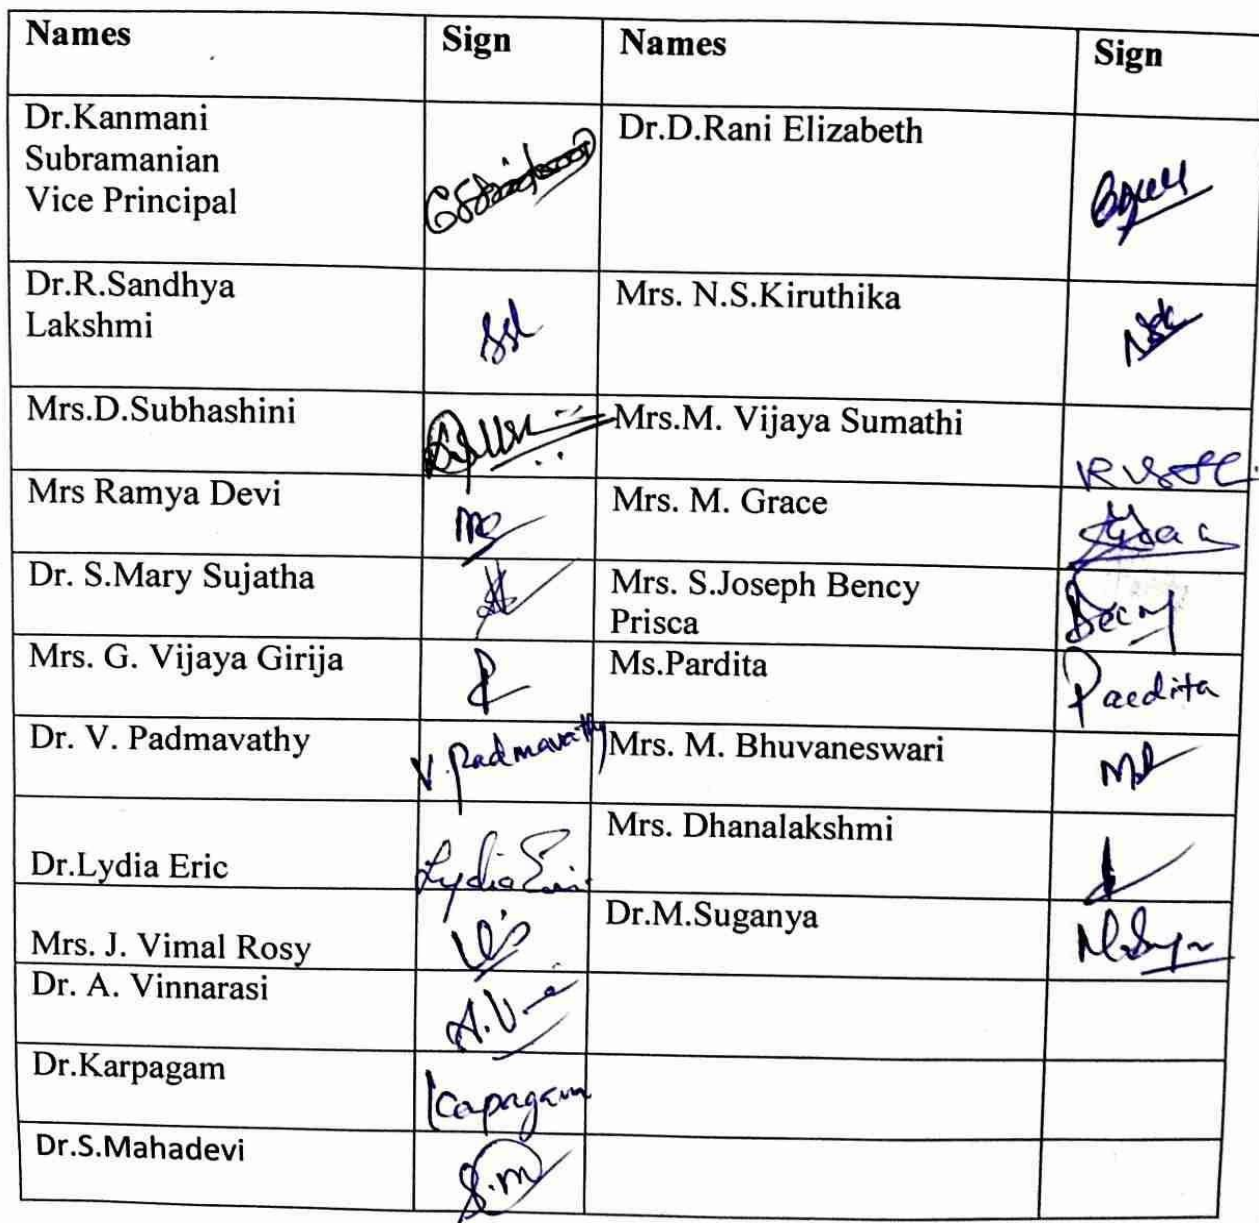 Names Sign Names Sign
Dr.Kanmani
Subramanian
Vice Principal
Dr.D.Rani Elizabeth
Dr.R.Sandhya
Lakshmi
Mrs. N.S.Kiruthika
Mrs.D.Subhashini
Mrs.M. Vijaya Sumathi
Mrs Ramya Devi
Mrs. M. Grace
Dr. S.Mary Sujatha
Mrs. S.Joseph Bency
Prisca
Mrs. G. Vijaya Girija
Ms.Pardita Paedita
Dr. V. Padmavathy V. Padmavathy
Mrs. M. Bhuvaneswari
Dr.Lydia Eric Lydia Eric
Mrs. Dhanalakshmi
Mrs. J. Vimal Rosy
Dr.M.Suganya
Dr. A. Vinnarasi
Dr.Karpagam Kapagam
Dr.S.Mahadevi S.m